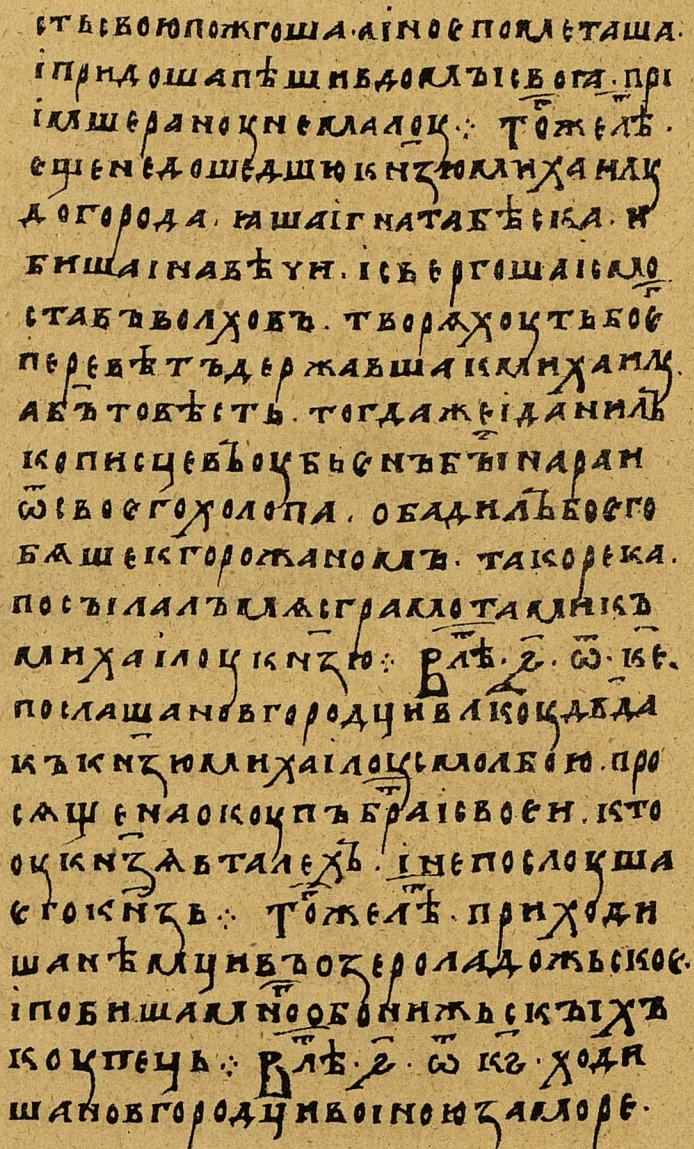 стьсвоюпожгоша·аіноєпомєташа·
іпридошапѣшивдомъісвога·прі
імшєраноунємалоу⁘ То҃жєлѣ҃·
єщєнєдошєдшюкн҃зюмихаилу
догорода·ꙗшаігнатабѣска·и
бишаінавѣчи·ісвєргошаісмо
ставъволховъ·творѧхоутьбоє
пєрєвѣтъдєржавшакмихаилу·
абъ҃товѣсть·тогдажєіданилъ
кописцєвъоубьєнъбъі҃нараи
ѿсвоєгохолопа·обадилъбоєго
бѧшєкгорожаномъ·такорєка·
посъілалъмѧсграмотамикъ
михаілоукн҃зю⁘ Влѣ҃·ѕ҃·ѿ·к҃є·
послашановгородцивл҃коудв҃да
къкн҃зюмихаілоусмолбою·про
сѧщєнаокоупъбр҃аісвоєи·кто
оукн҃зѧвталєхъ·інєпослоуша
єгокн҃зь⁘ То҃жєлѣ҃·приходи
шанѣмцивъозєроладожьскоє·
іпобишамн҃ообонижьскъіхъ
коупєць⁘ Влѣ҃·ѕ҃·ѿк҃ѕ·ходи
шановгородцивоіноюзаморє·